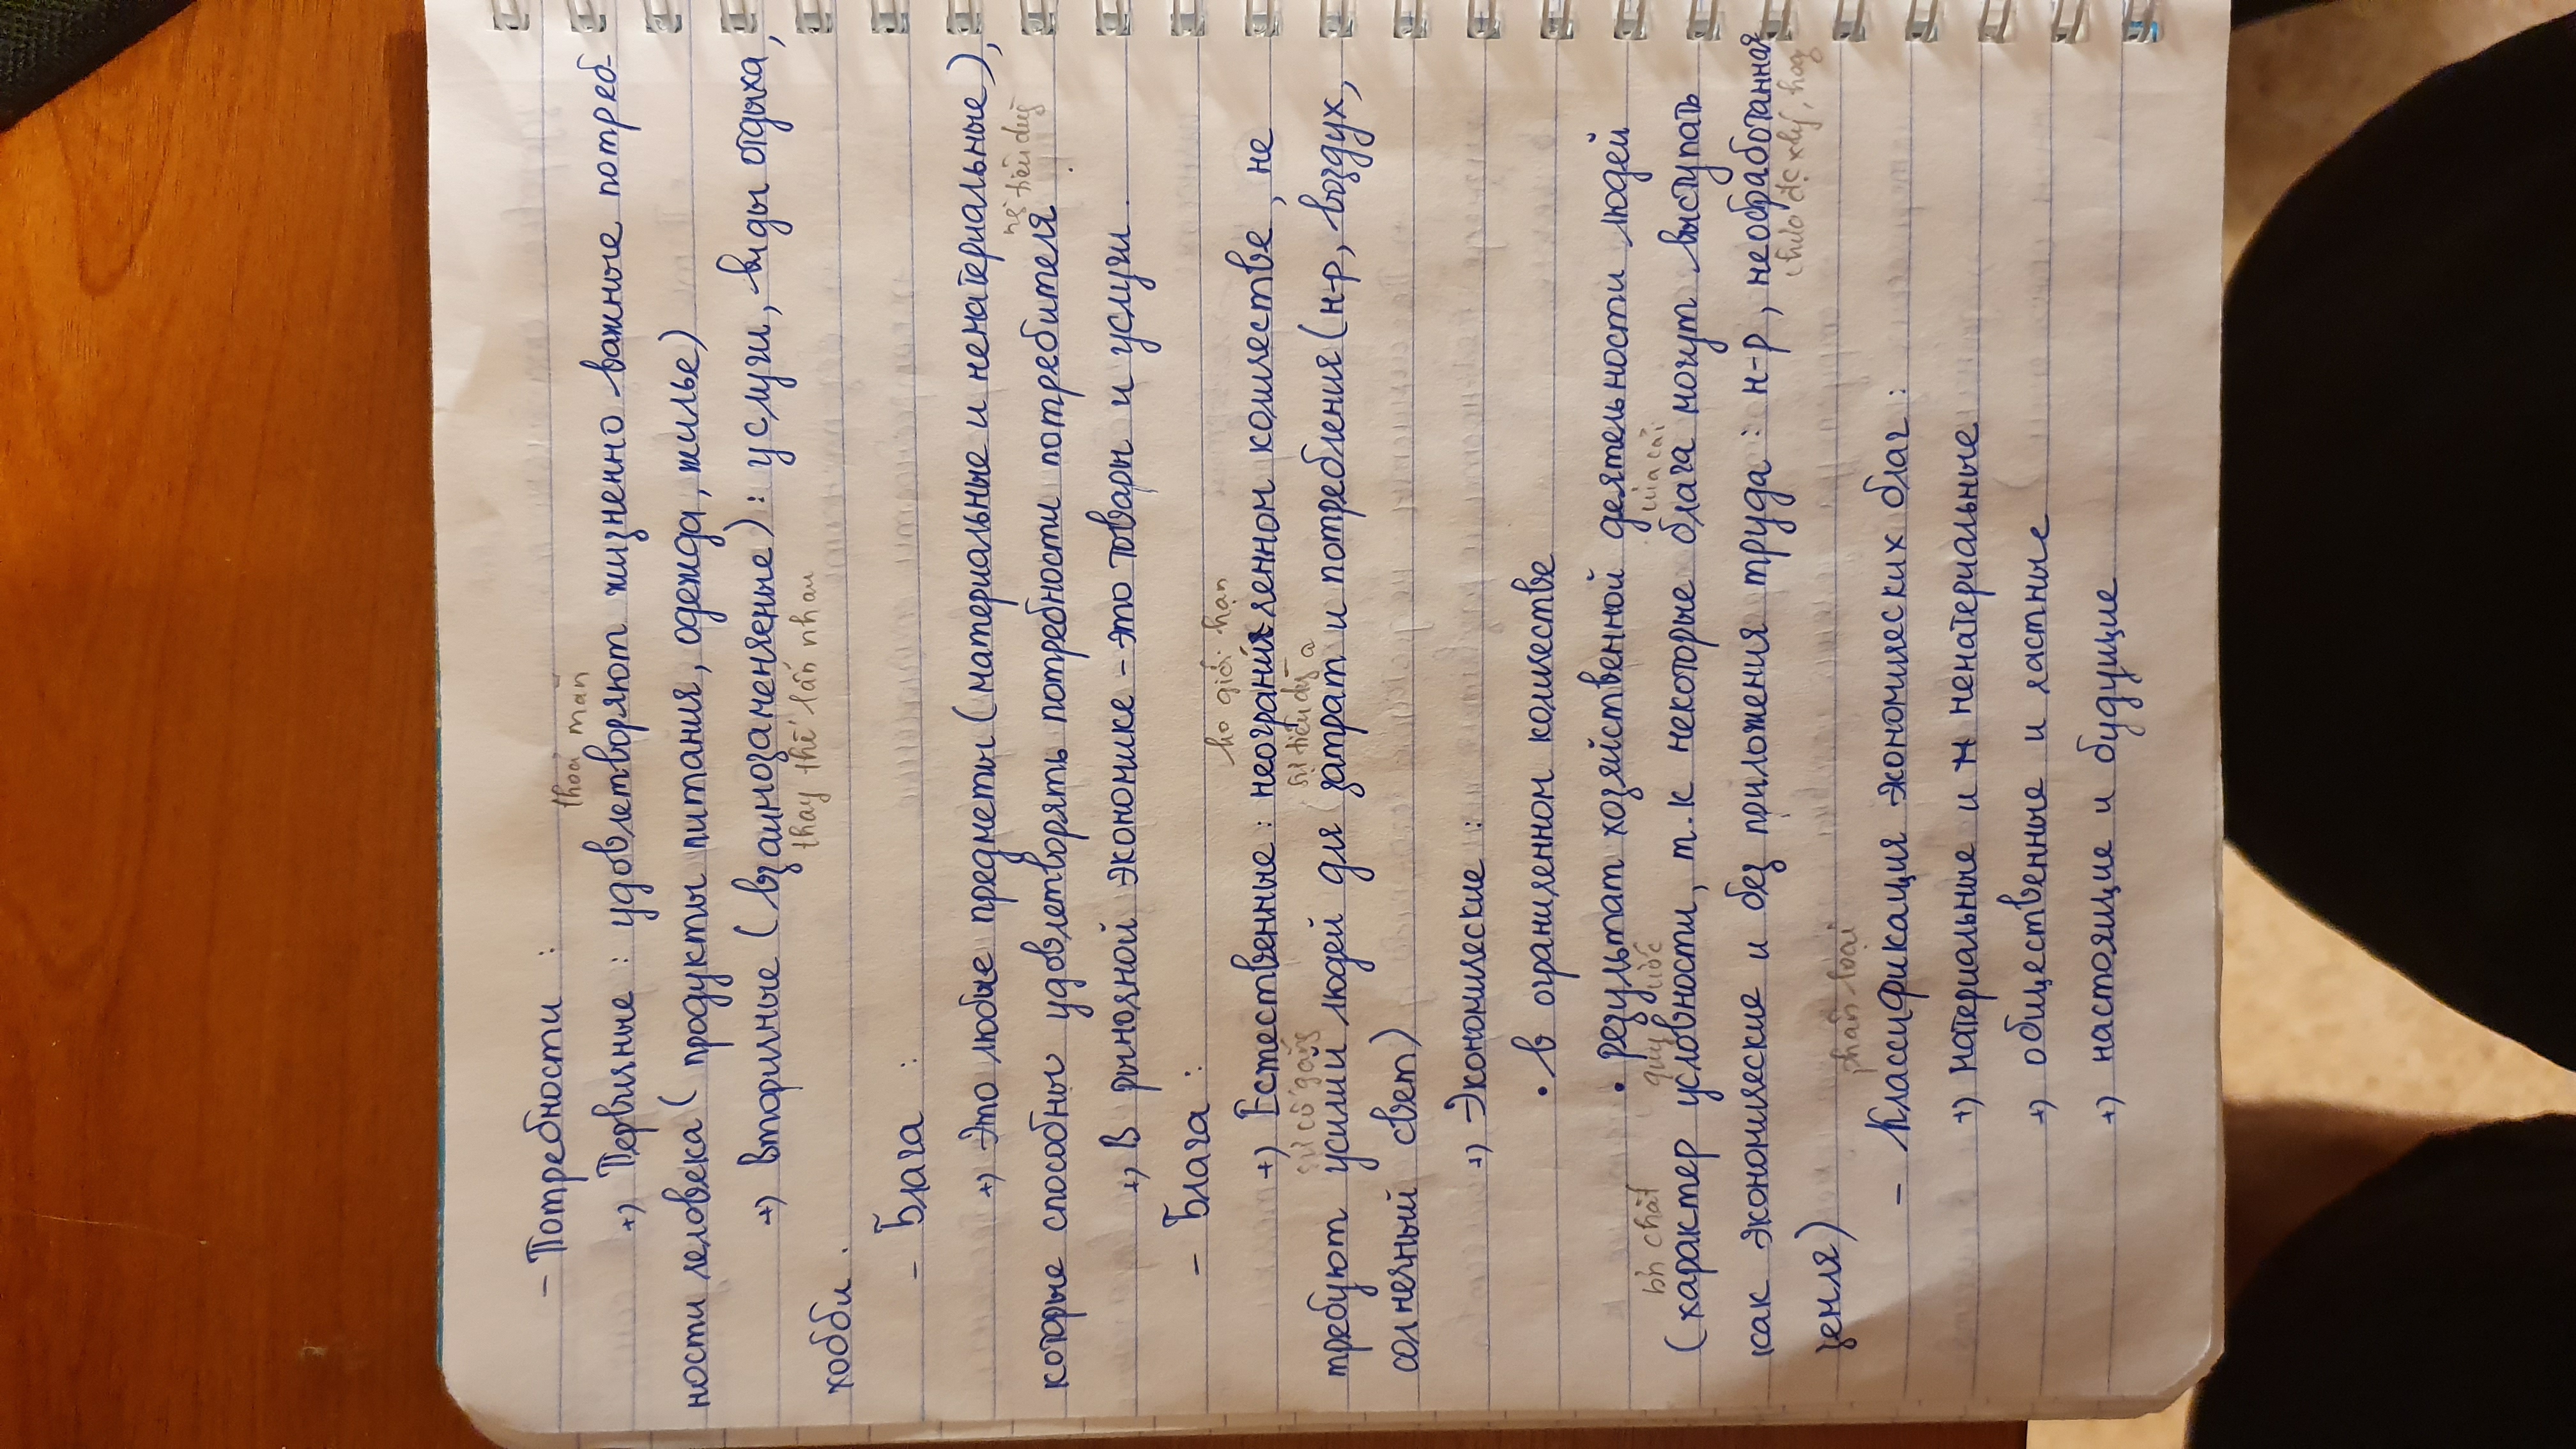 - Потребности :
thoả mãn
+) Первичные : удовлетворяют жизненно важные потреб-
ности человека ( продукты питания, одежда, жилье)
+) вторичные ( взаимозаменяемые) : услуги, виды отдыха,
thay thế lẫn nhau
хобби .
- Блага :
+) Это любые предметы ( материальные и нематериальные ),
которые способны удовлетворять потребности потребителя .
+) В рыночной экономике - это товары и услуги .
- Блага :
ko giới hạn
+) Естественные : неограниченном количестве , не
sự cố gắng
требуют усилий людей для затрат и потребления ( н-р, воздух,
солнечный свет)
+) Экономические :
• в ограниченном количестве
• результат хозяйственной деятельности людей
bản chất quy ước của cải
( характер условности, т.к некоторые блага могут выступать
как экономические и без приложения труда : н-р, необработанная
земля)
phân loại
- Классификация экономических благ :
+) материальные и нематериальные
+) общественные и частные
+) настоящие и будущие